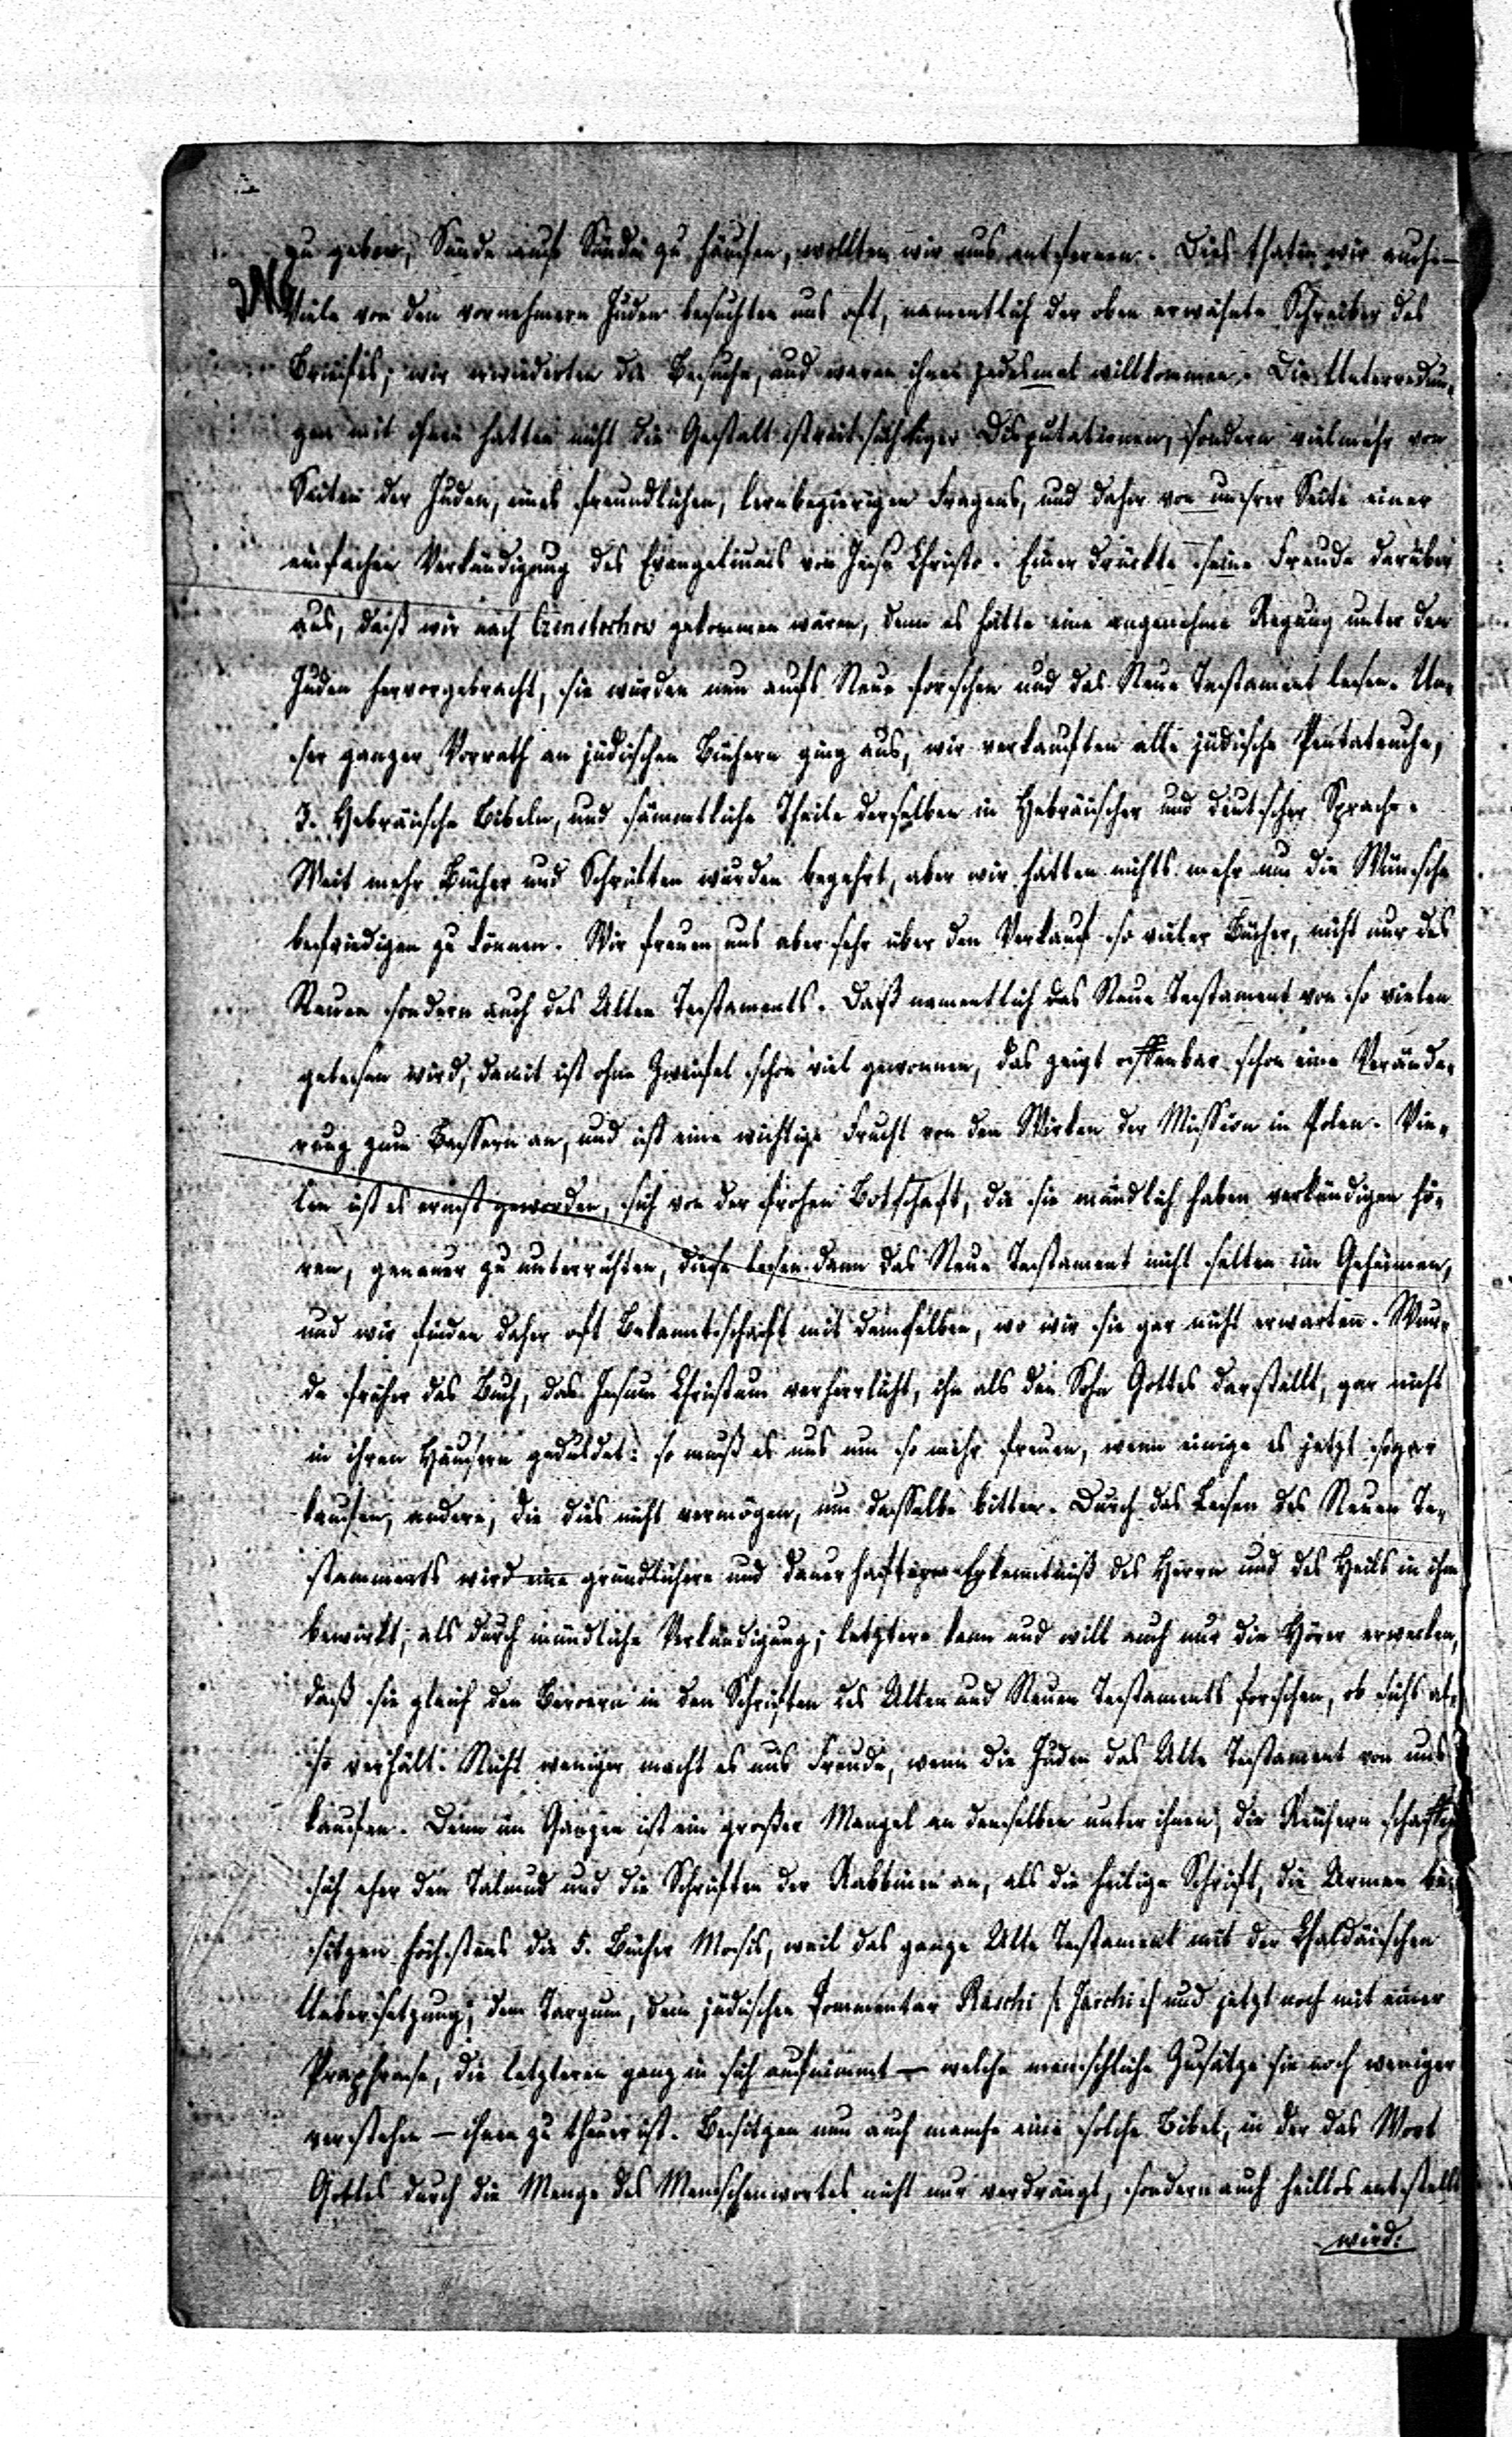 zu geben, Sünde auf Sünde zu häufen, wollten wir uns entfernen. Dies thaten wir auch.—
Viele von den vornehmern Juden besuchten uns oft, namentlich der oben erwähnte Schreiber des
Briefes; wir erwiederten die Besuche, und waren ihnen jedesmal willkommen. Die Unterredun-
gen mit ihnen hatten nicht die Gestalt streitsüchtiger Disputationen, sondern vielmehr von
Seiten der Juden, eines freundlichen, lernbegierigen Fragens, und daher von unsrer Seite einer
einfachen Verkündigung des Evangeliums von Jesu Christo. Einer drückte seine Freude darüber
aus, daß wir nach Czenstochow gekommen wären, denn es hätte eine angenehme Regung unter den
Juden hervorgebracht, sie würden nun aufs Neue forschen und das Neue Testament lesen. Un-
ser ganzer Vorrath an jüdischen Büchern ging aus, wir verkauften alle jüdische Pentateuche,
3. Hebräische Bibeln, und sämmtliche Theile derselben in Hebräischer und deutscher Sprache.
Weit mehr Bücher und Schriften wurden begehrt, aber wir hatten nichts mehr um die Wünsche
befriedigen zu können. Wir freuen uns aber sehr über den Verkauf so vieler Bücher, nicht nur des
Neuen sondern auch des Alten Testaments. Daß namentlich das Neue Testament von so vielen
gelesen wird, damit ist ohne Zweifel schon viel gewonnen, das zeigt offenbar schon eine Verände-
rung zum Bessern an, und ist eine wichtige Frucht von dem Wirken der Mission in Polen. Vie-
len ist es ernst geworden, sich von der frohen Botschaft, die sie mündlich haben verkündigen hö-
ren, genauer zu unterrichten, diese lesen dann das Neue Testament nicht selten im Geheimen,
und wir finden daher oft Bekanntschaft mit demselben, wo wir sie gar nicht erwarten. Wur-
de früher das Buch, das Jesum Christum verherrlicht, ihn als den Sohn Gottes darstellt, gar nicht
in ihren Häusern geduldet: so muß es uns um so mehr freuen, wenn einige es jetzt sogar
kaufen, andere, die dies nicht vermögen, um dasselbe bitten. Durch das Lesen des Neuen Te-
staments wird eine gründlichere und dauerhaftere Erkenntniß des Herrn und des Heils in ihm
bewirkt, als durch mündliche Verkündigung; letztere kann und will auch nur die Hörer erwecken,
daß sie gleich den Beroern in den Schriften des Alten und Neuen Testaments forschen, ob sichs al-
so verhält. Nicht weniger macht es uns Freude, wenn die Juden das Alte Testament von uns
kaufen. Denn im Ganzen ist ein großer Mangel an demselben unter ihnen, die Reichern schaffen
sich eher den Talmud und die Schriften der Rabbinen an, als die heilige Schrift, die Armen be-
sitzen höchstens die 5. Bücher Mosis, weil das ganze Alte Testament mit der Chaldäischen
Uebersetzung, dem Targum, dem jüdischen Commentar Raschi /: Jarchi :/ und jetzt noch mit einer
Praphrase, die letzteren ganz in sich aufnimmt — welche menschliche Zusätze sie noch weniger
verstehen — ihnen zu theuer ist. Besitzen nun auch manche eine solche Bibel, in der das Wort
Gottes durch die Menge des Menschenwortes nicht nur verdrängt, sondern auch heillos entstellt
wird: